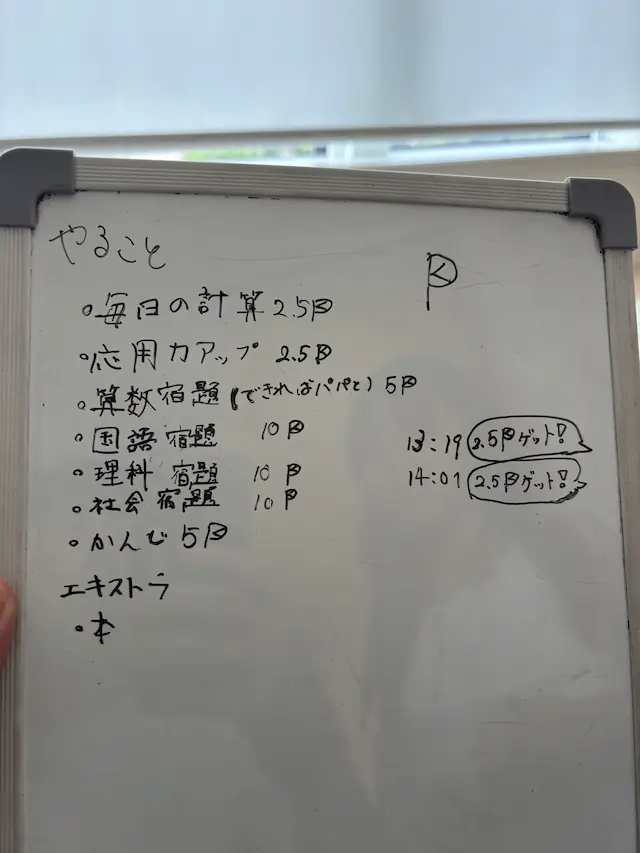 やること
・毎日の計算 2.5P
・応用力アップ 2.5P
・算数宿題(できればパパと) 5P
・国語 宿題 10 P
・理科 宿題 10 P
・社会 宿題 10 P
・かんじ 5P
エキストラ
・本
P
13:19 2.5Pゲット!
14:01 2.5Pゲット!